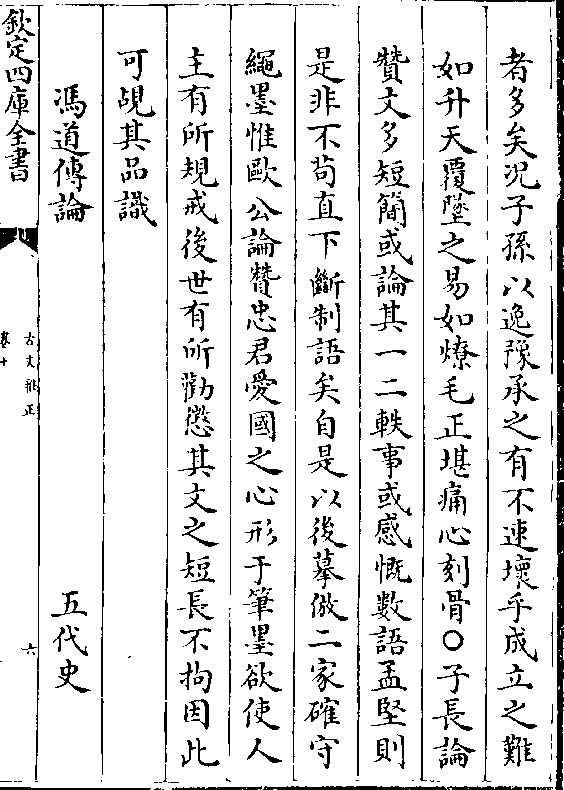 者多矣况子孫以逸豫承之有不速壞乎成立之難
如升天覆墜之易如燎毛正堪痛心刻骨○子長論
贊文多短簡或論其一二軼事或感慨數語孟堅則
是非不茍直下斷制語矣自是以後摹倣二家確守
繩墨惟歐公論贊忠君愛國之心形于筆墨欲使人
主有所規戒後世有所勸懲其文之短長不拘因此
可覘其品識
馮道傳論 五代史
欽定四庫全書
古文雅正
卷十
六